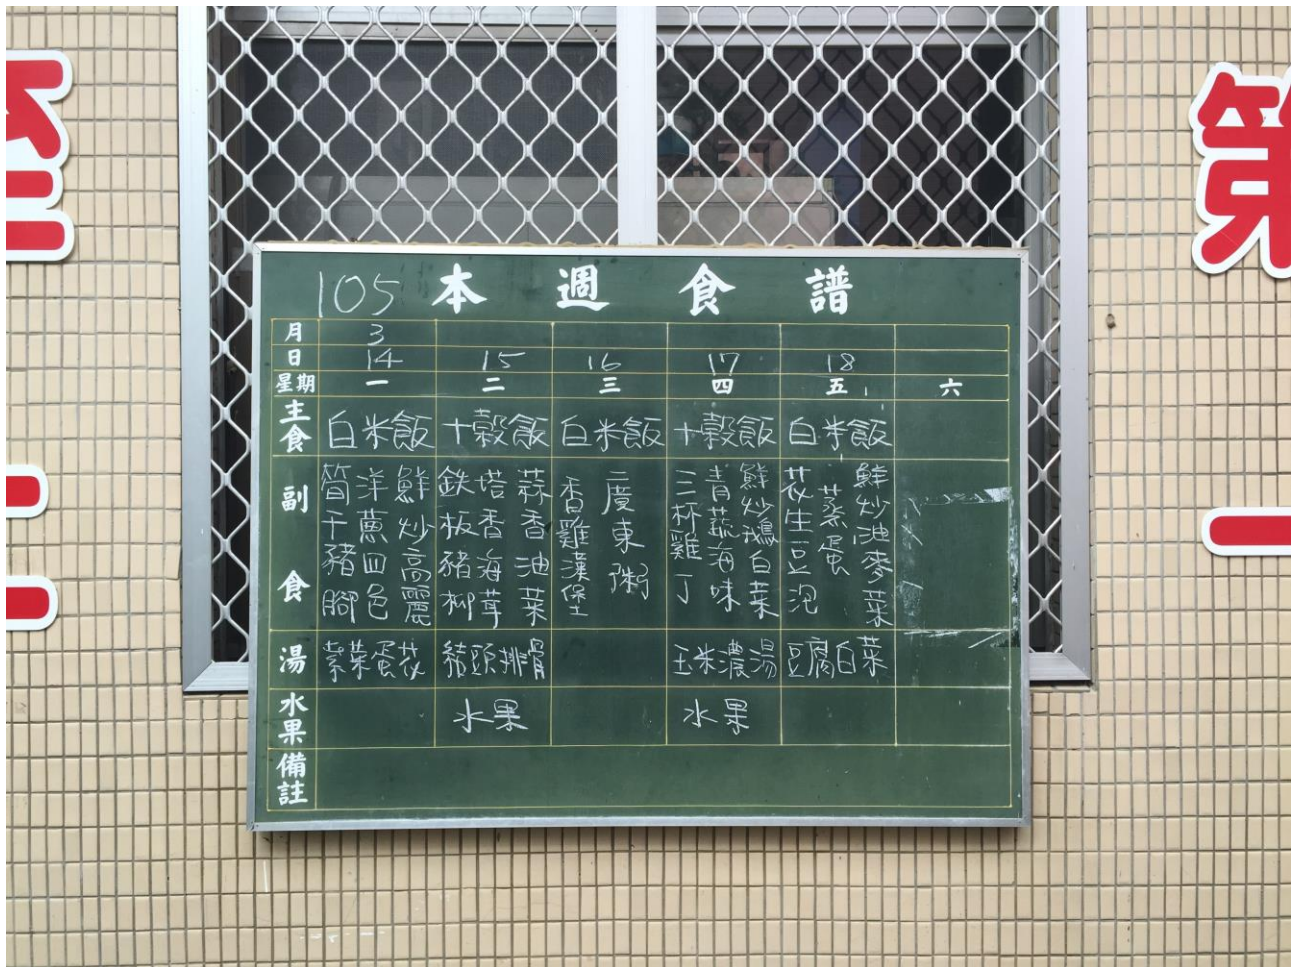 105 本週食譜
月 3
日 14 15 16 17 18
星期 一 二 三 四 五 六
主食 白米飯 十穀飯 白米飯 十穀飯 白米飯
副食
筍干豬腳
洋蔥四色
鮮炒高麗
鉄板豬柳
塔香海茸
蒜香油菜
香雞漢堡
廣東粥
三杯雞丁
青蔬海味
鮮炒鵝白菜
花生豆泡
蒸蛋
鮮炒油麥菜
湯 紫菜蛋花 結頭排骨 玉米濃湯 豆腐白菜
水果 水果 水果
備註
第
一